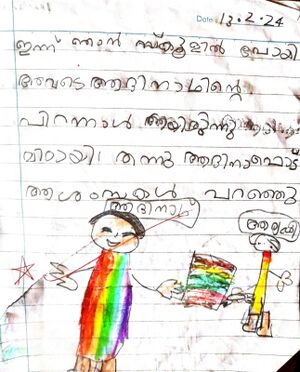 Date: 13.2.24
ഇന്ന് ഞാൻ സ്കൂളിൽ പോയി
അവടെ ആദിനാഥിന്റെ
പിറന്നാൾ ആയിരുന്നു
മിഠായി തന്നു ആദിനാഥോട്
ആശംസകൾ പറഞ്ഞു
ആദിനാഥ്